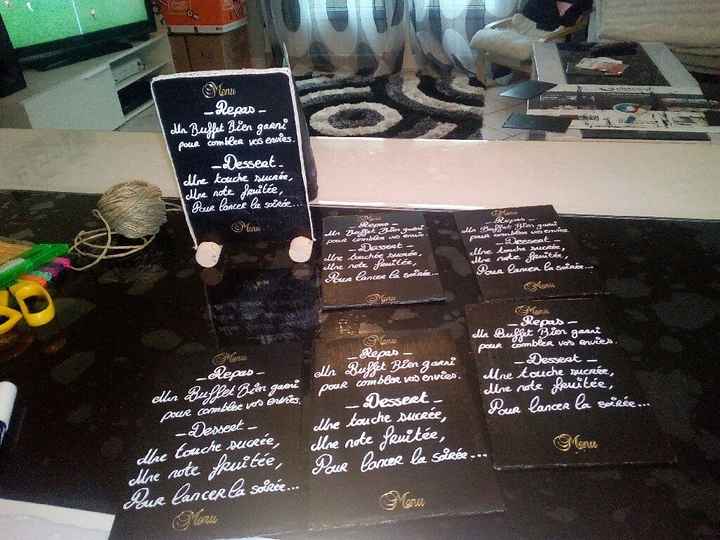 Menu
_ Repas _
Un Buffet Bien garni
pour combler vos envies.
_ Dessert _
Une touche sucrée,
Une note fruitée,
Pour lancer la soirée...
Menu
Menu
_ Repas _
Un Buffet Bien garni
pour combler vos envies
_ Dessert _
Une touchée sucrée,
Une note fruitée,
Pour lancer la soirée...
Menu
Menu
_ Repas _
Un Buffet Bien garni
pour combler vos envies
_ Dessert _
Une touche sucrée,
Une note fruitée,
Pour lancer la soirée...
Menu
Menu
_ Repas _
Un Buffet Bien garni
pour combler vos envies.
_ Dessert _
Une touche sucrée,
Une note fruitée,
Pour lancer la soirée...
Menu
Menu
_ Repas _
Un Buffet Bien garni
pour combler vos envies.
_ Dessert _
Une touche sucrée,
Une note fruitée,
Pour lancer la soirée...
Menu
Menu
_ Repas _
Un Buffet Bien garni
pour combler vos envies.
_ Dessert _
Une touche sucrée,
Une note fruitée,
Pour lancer la soirée...
Menu